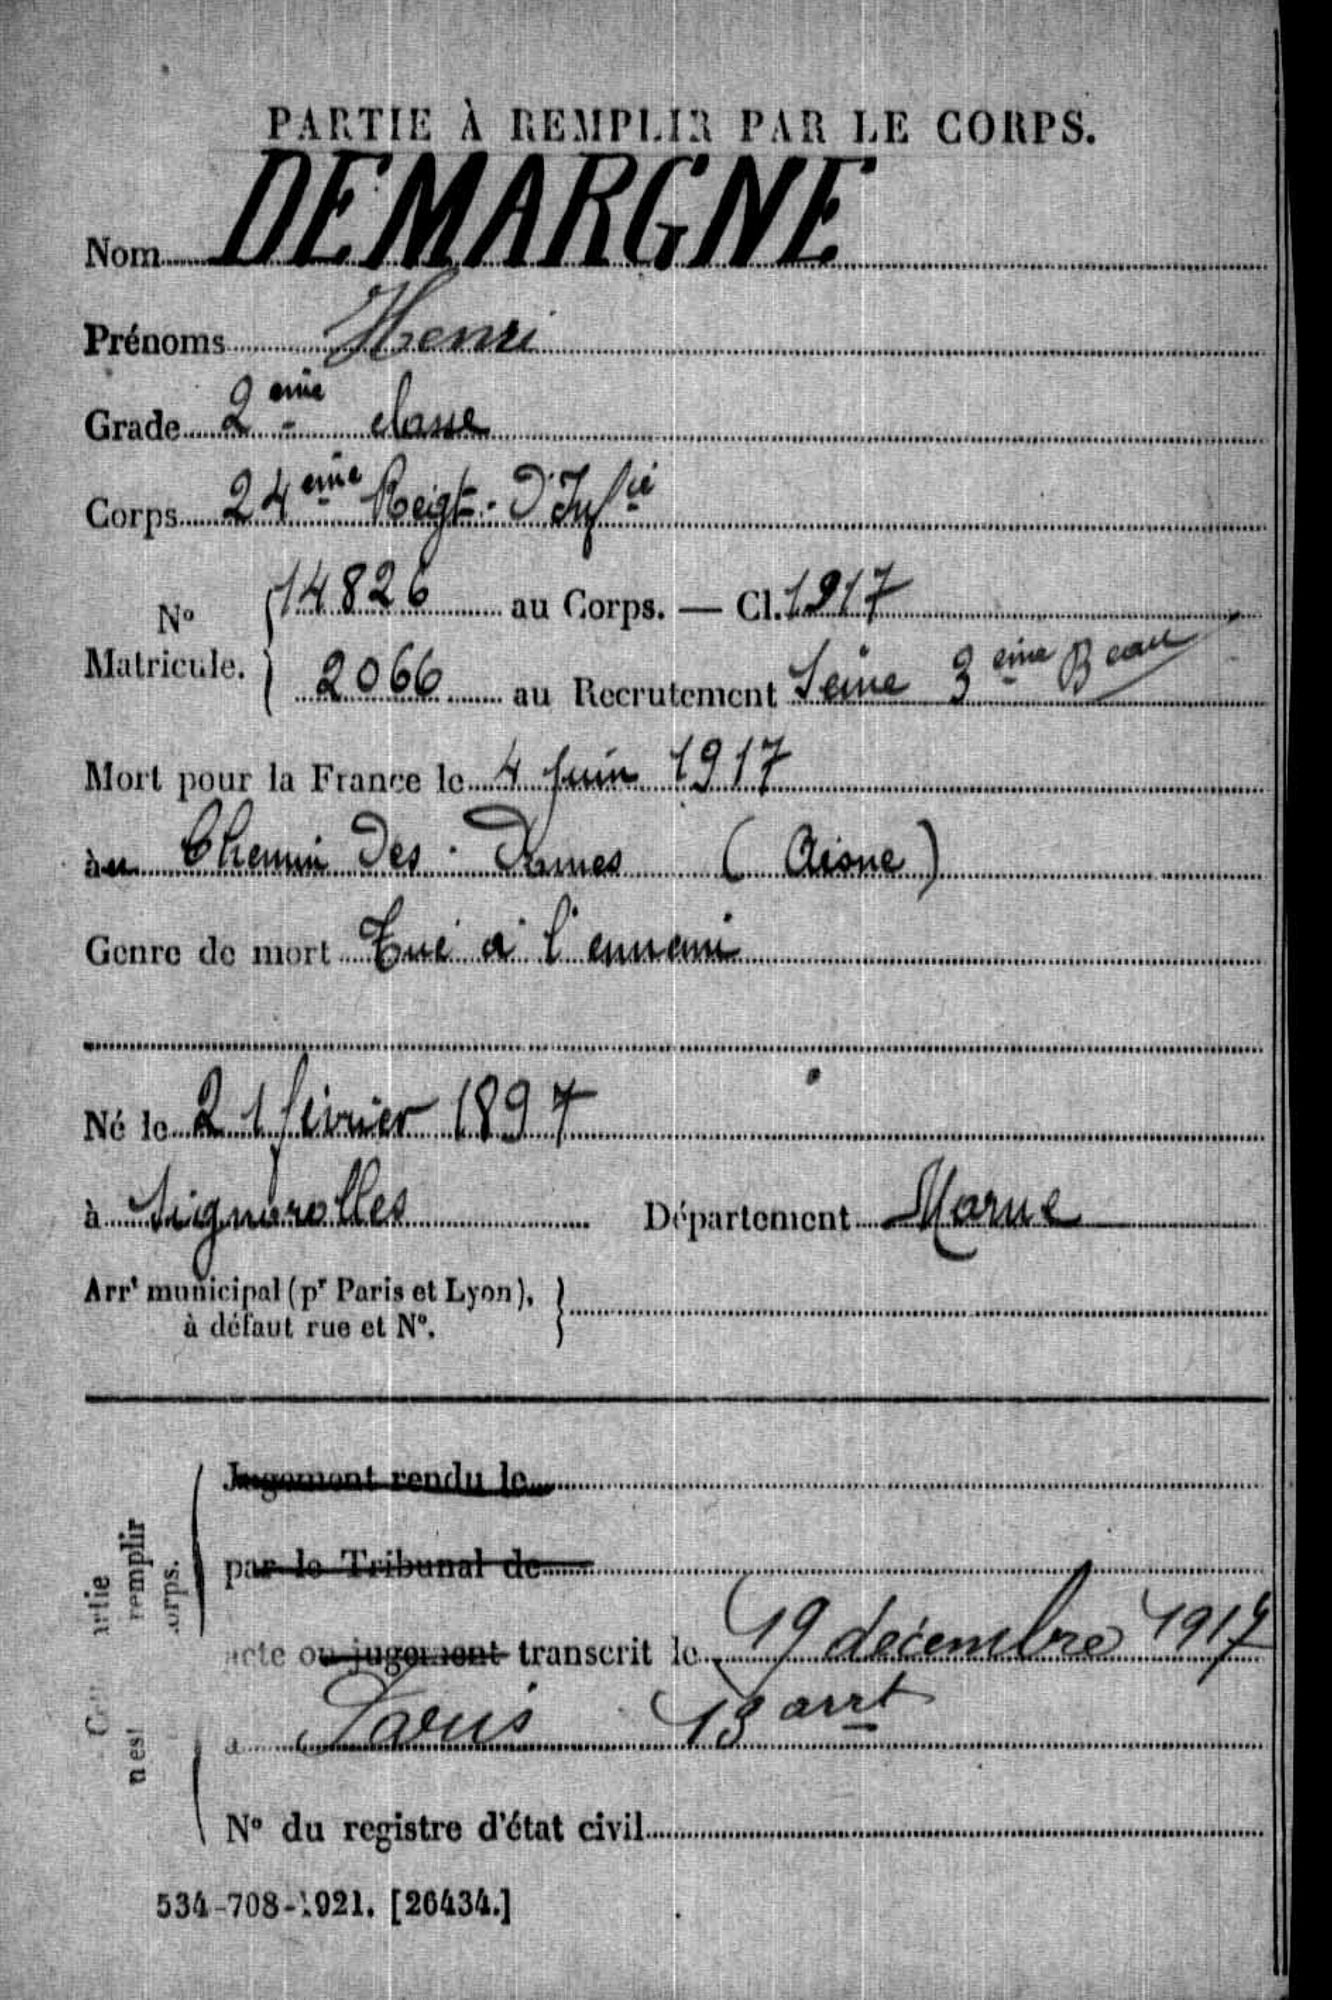 PARTIE À REMPLIR PAR LE CORPS.
Nom DEMARGNE
Prénoms Henri
Grade 2 eme classe
Corps 24 eme Regt. D'Infie
No Matricule. { 14826 au Corps. — Cl. 1917
2066 au Recrutement Seine 3 eme Beau
Mort pour la France le 4 juin 1917
au Chemin Des Dames (Aisne)
Genre de mort Tué à l'ennemi
Né le 21 février 1897
à Département Marne
Arrt municipal (pr Paris et Lyon),
à défaut rue et No.
Jugement rendu le
par le Tribunal de
acte ou jugement transcrit le 19 décembre 1917
a Paris 13 arrt
No du registre d'état civil
remplir
534-708-1921. [26434.]